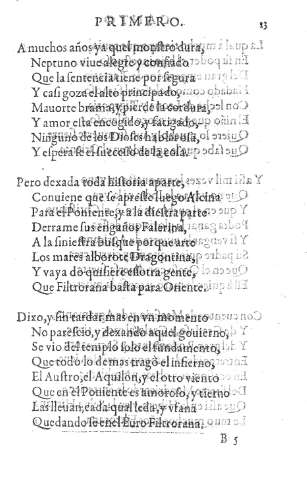 PRIMERO. 13
A muchos años ya quel mõstro dura,
Neptuno viue alegre y confiado
Que la sentencia tiene por segura
Y casi goza el alto principado,
Mauorte brama, y pierde la cordura,
Y amor esta encogido, y fatigado,
Ninguno de los Dioses hablar osa,
Y espera se el successo de la cosa.
Pero dexada toda historia aparte,
Conuiene que se apreste luego Alcina
Para el Poniente, y a la diestra parte
Derrame sus engaños Falerina,
A la siniestra busque por que arte
Los mares alborote Dragontina,
Y vaya do quisiere essotra gente,
Que Filtrorana basta para Oriente.
Dixo, y sin tardar mas en vn momento
No parescio, y dexando aquel gouierno,
Se vio del templo solo el fundamento,
Que todo lo demas tragò el infierno,
El Austro, el Aquilõn, y el otro viento
Que en el Poniente es amoroso, y tierno
Las lleuan, cada qual leda, y vfana
Quedando se en el Euro Filtrorana.
B 5